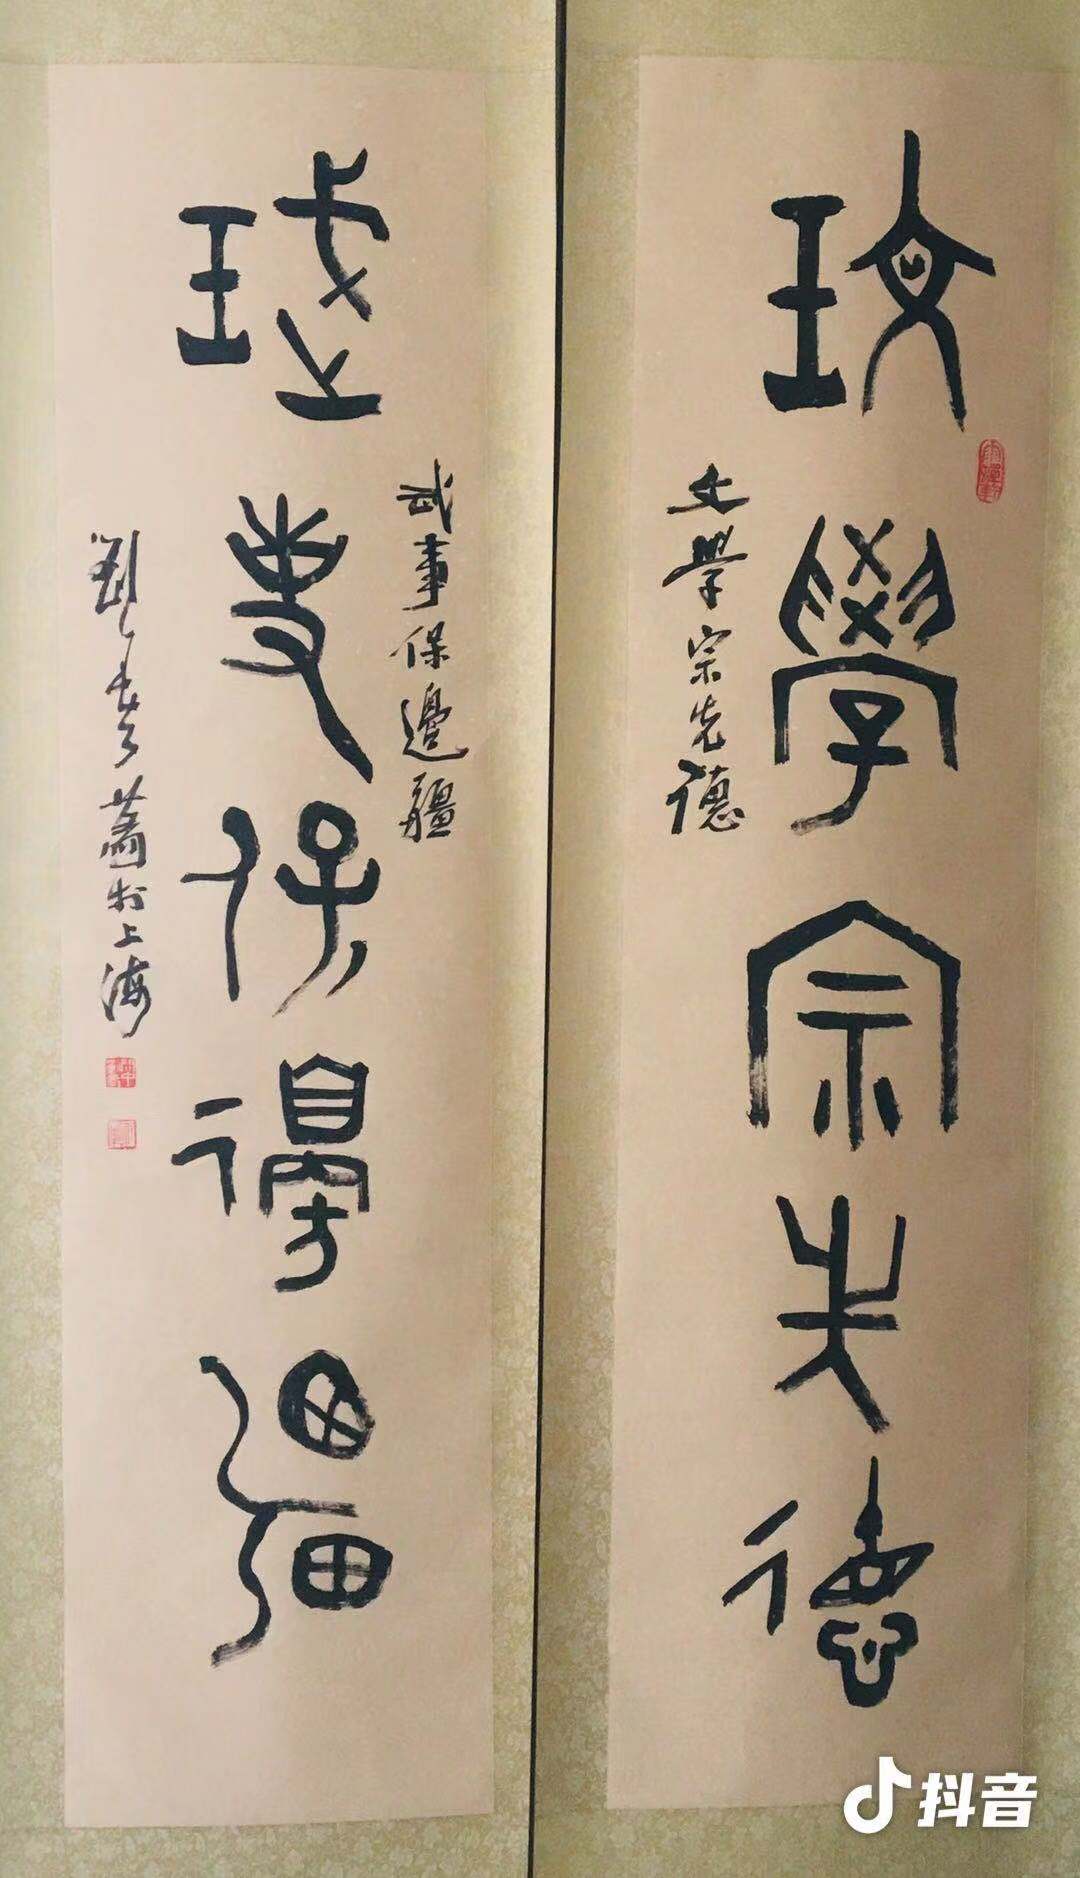 玟學宗先德
文學宗先德
珷事保邊彊
武事保邊疆
劉 於上海
抖音